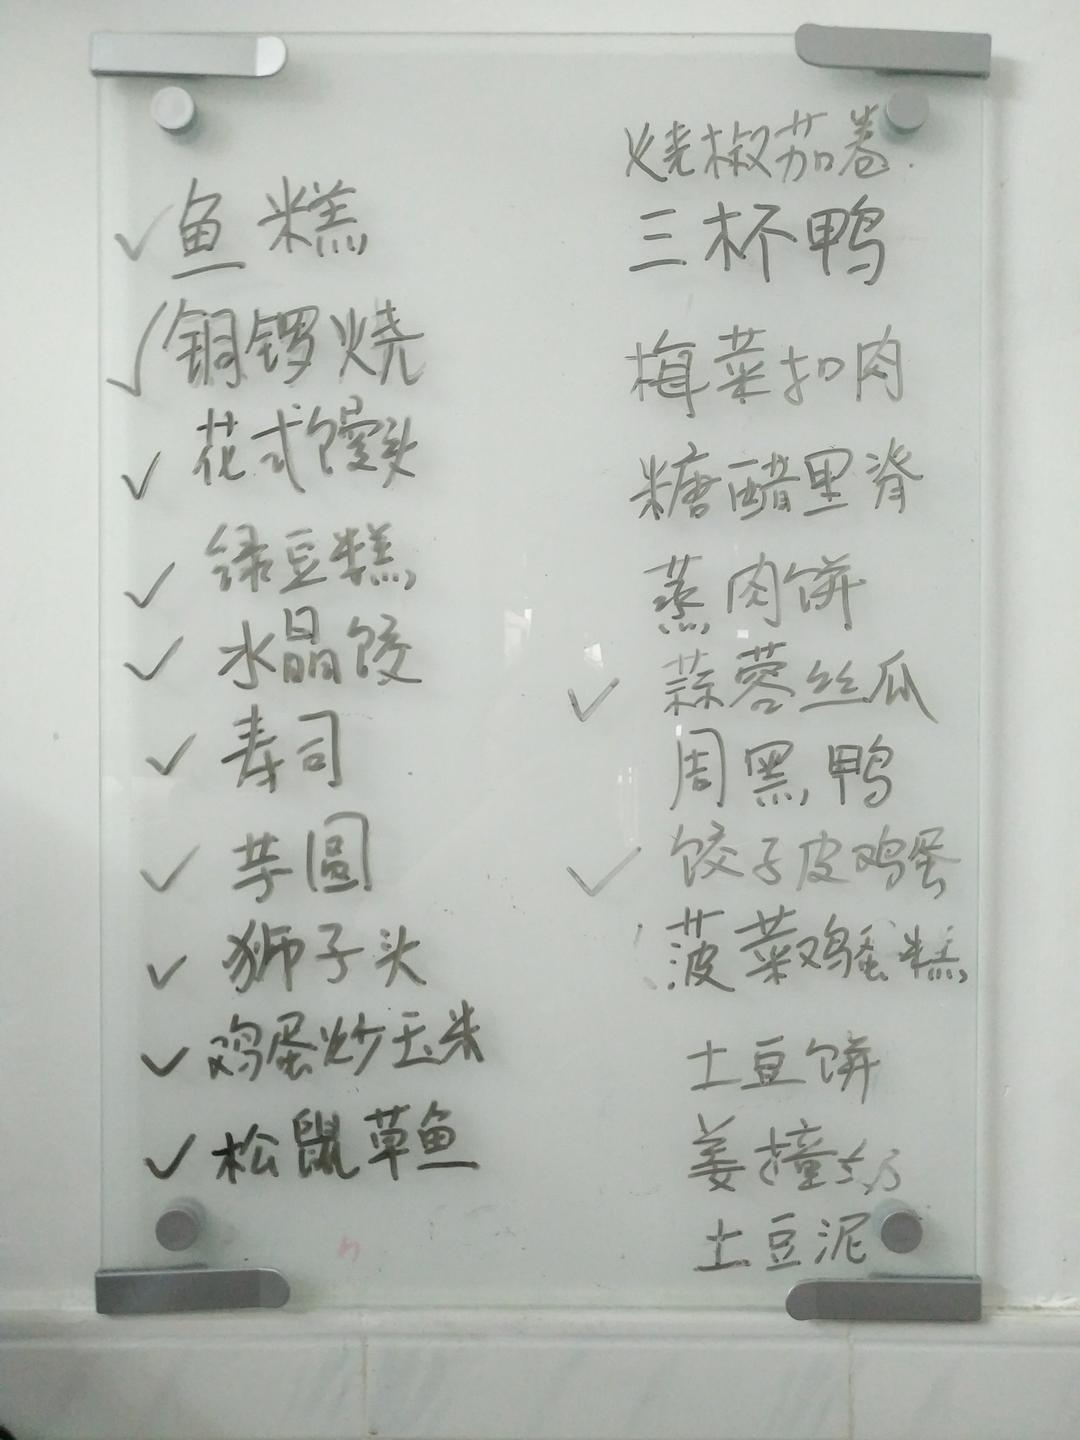 ✓鱼糕
✓铜锣烧
✓花式馒头
✓绿豆糕
✓水晶饺
✓寿司
✓芋圆
✓狮子头
✓鸡蛋炒玉米
✓松鼠草鱼
烧椒茄卷
三杯鸭
梅菜扣肉
糖醋里脊
蒸肉饼
✓蒜蓉丝瓜
周黑鸭
✓饺子皮鸡蛋
菠菜鸡蛋糕
土豆饼
姜撞奶
土豆泥